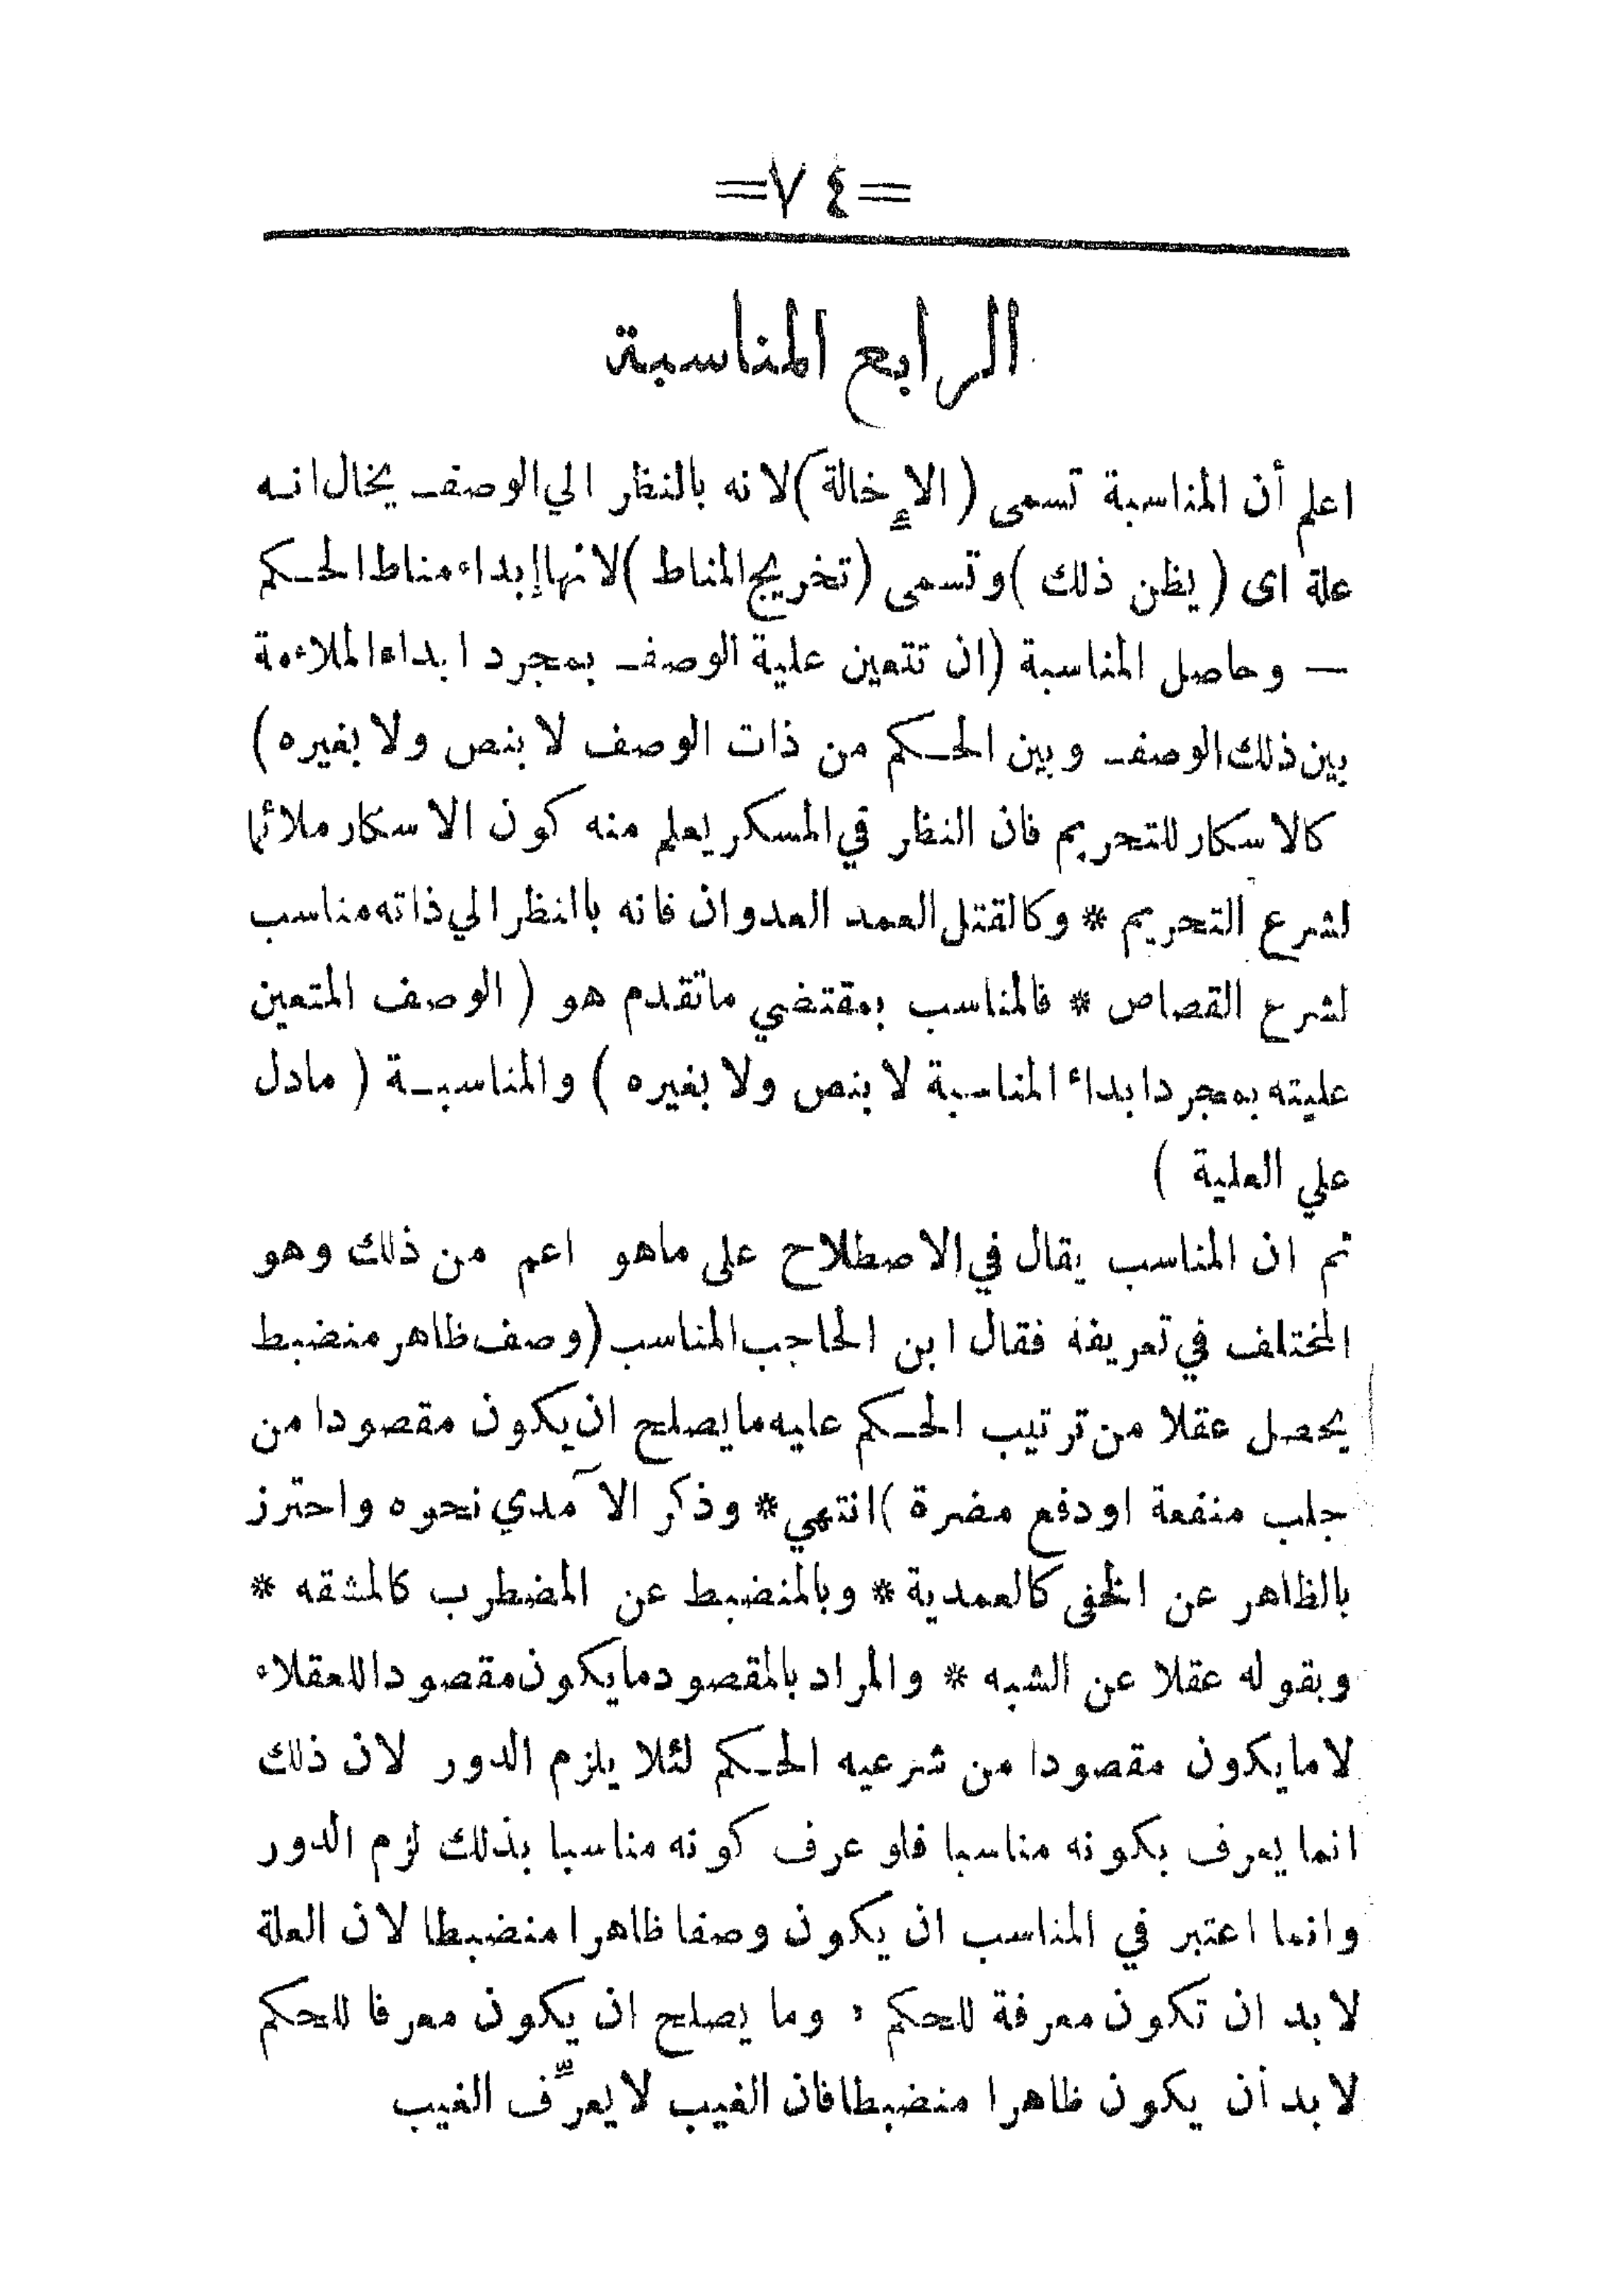 =٧٤=
الرابع المناسبة
اعلم أن المناسبة تسمى (الإخالة) لانه بالنظر الي الوصف يخال انه
علة اى (يظن ذلك) وتسمى (تخريج المناط) لانها إبداء مناط الحكم
— وحاصل المناسبة (ان تتعين علية الوصف بمجرد ابداء الملاءمة
بين ذلك الوصف وبين الحكم من ذات الوصف لا بنص ولا بغيره)
كالاسكار للتحريم فان النظر في المسكر يعلم منه كون الاسكار ملائما
لشرع التحريم * وكالقتل العمد العدوان فانه باالنظر الي ذاته مناسب
لشرع القصاص * فالمناسب بمقتضي ماتقدم هو (الوصف المتعين
عليته بمجرد ابداء المناسبة لا بنص ولا بغيره) والمناسبة (مادل
علي العلية)
ثم ان المناسب يقال في الاصطلاح على ماهو اعم من ذلك وهو
المختلف في تعريفه فقال ابن الحاجب المناسب (وصف ظاهر منضبط
يحصل عقلا من ترتيب الحكم عليه ما يصلح ان يكون مقصودا من
جلب منفعة او دفع مضرة) انتهي * وذكر الآمدي نحوه واحترز
بالظاهر عن الخفى كالعمدية * وبالمنضبط عن المضطرب كالمشقه *
وبقوله عقلا عن الشبه * والمراد بالمقصود ما يكون مقصودا للعقلاء
لا ما يكون مقصودا من شرعيه الحكم لئلا يلزم الدور لان ذلك
انما يعرف بكونه مناسبا فلو عرف كونه مناسبا بذلك لزم الدور
وانما اعتبر في المناسب ان يكون وصفا ظاهرا منضبطا لان العلة
لابد ان تكون معرفة للحكم ، وما يصلح ان يكون معرفا للحكم
لابد أن يكون ظاهرا منضبطا فان الغيب لا يعرِّف الغيب